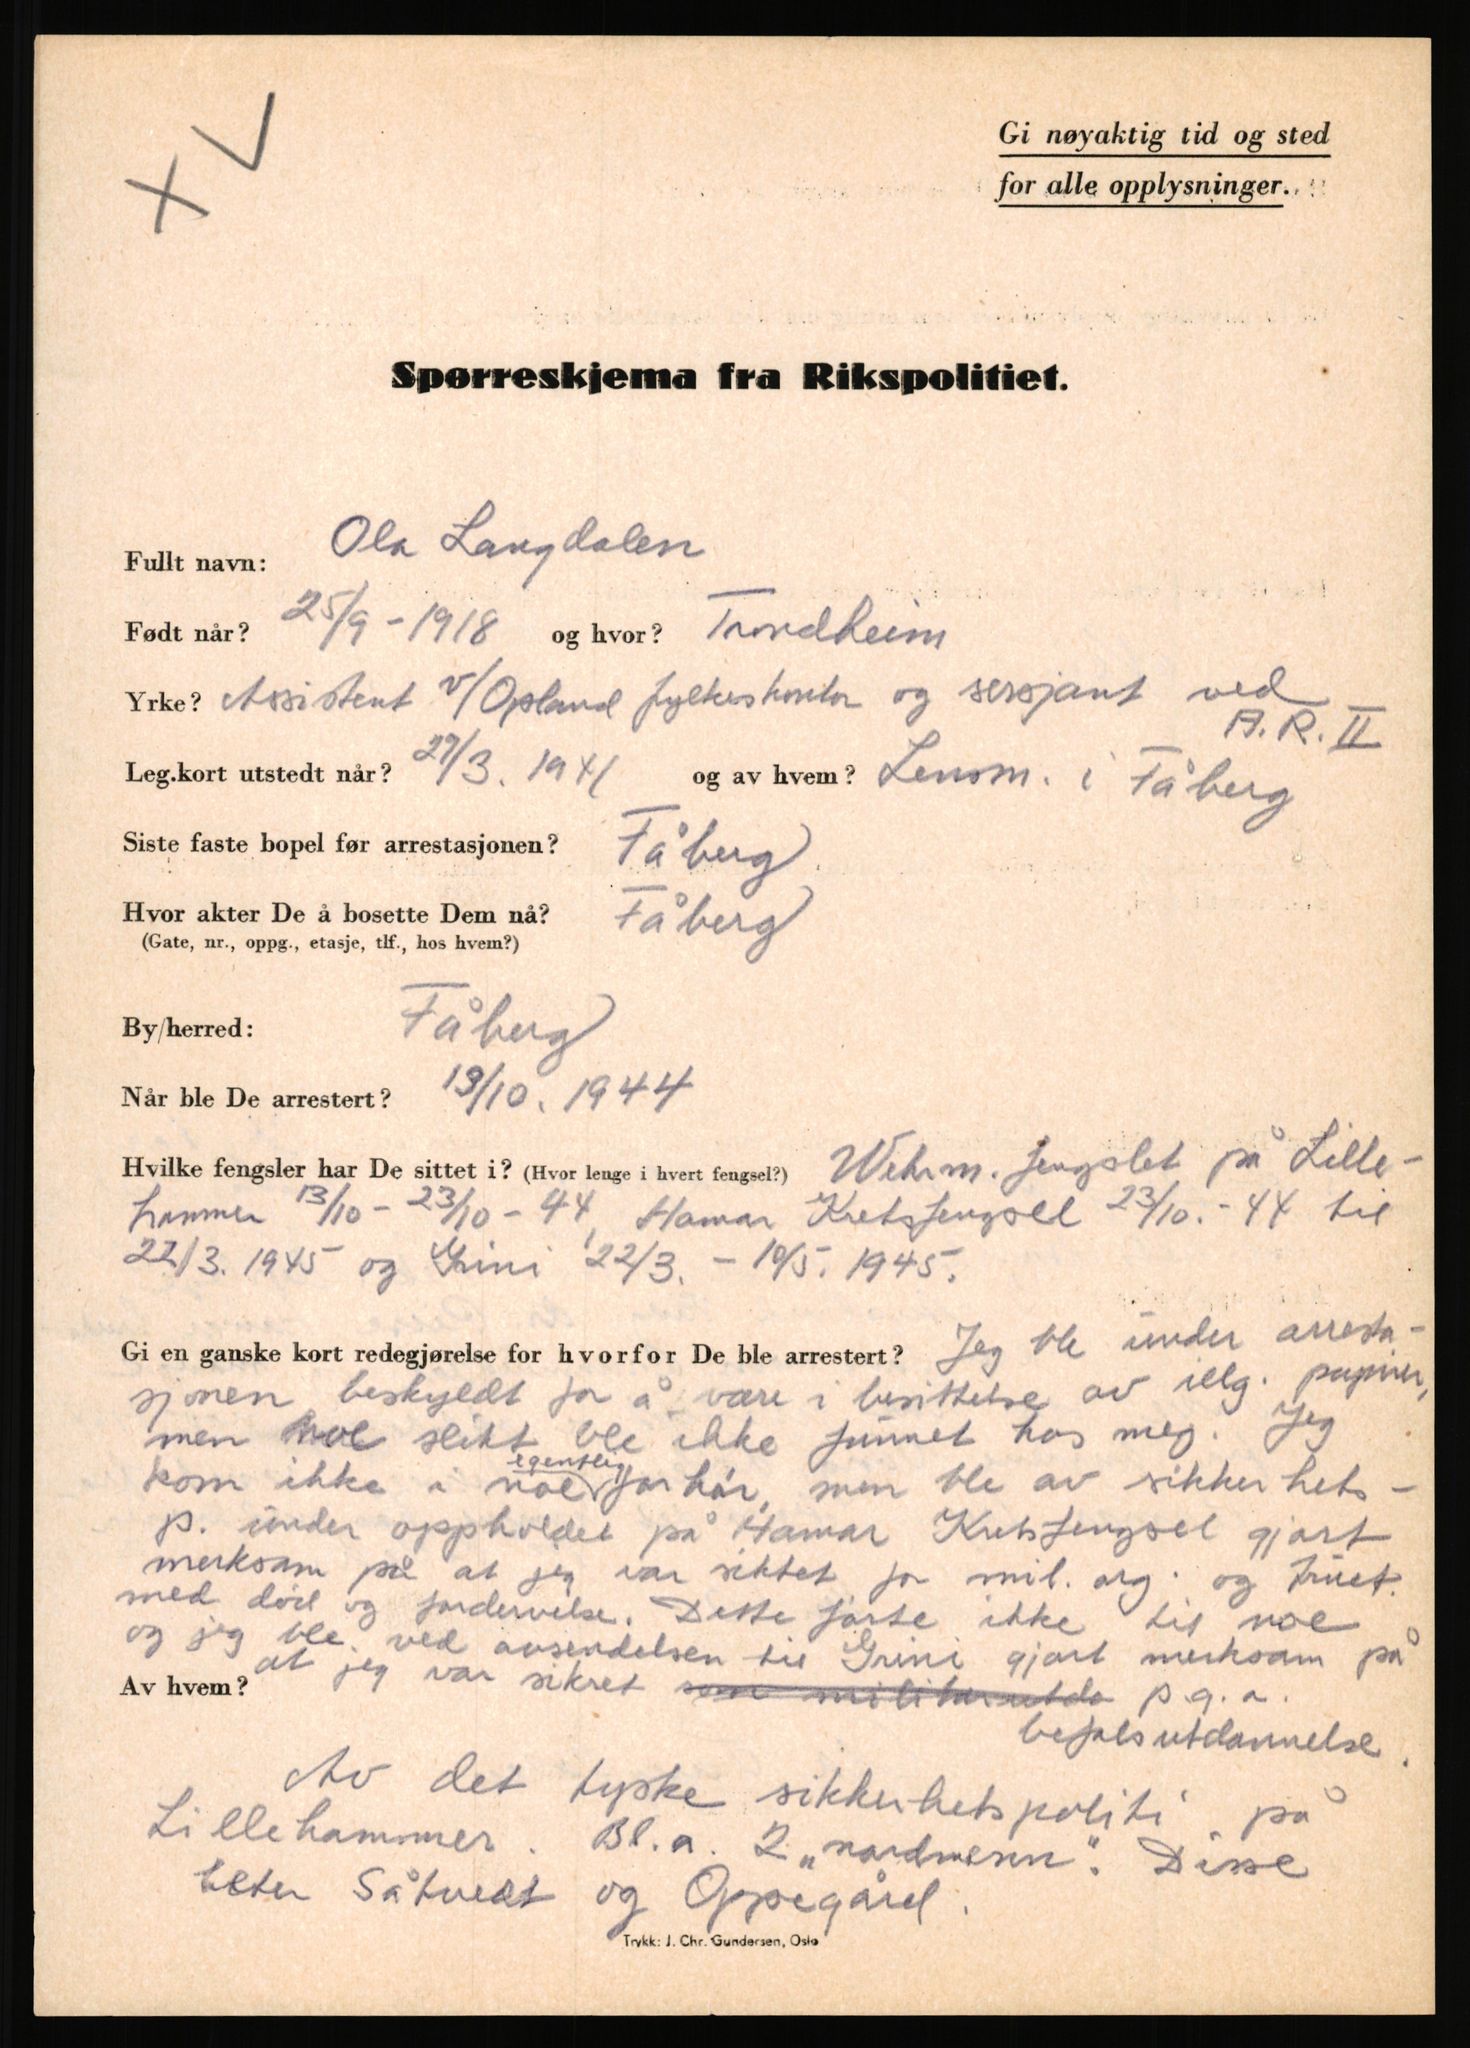 X V
Gi nøyaktig tid og sted
for alle opplysninger.
Spørreskjema fra Rikspolitiet.
Fullt navn: Ola Langdalen
Født når? 25/9 - 1918 og hvor? Trondheim
Yrke? Assistent v/Opland fylkeskontor og sersjant ved
A.R. II
Leg.kort utstedt når? 27/3. 1941 og av hvem? Lensm. i Fåberg
Siste faste bopel før arrestasjonen? Fåberg
Hvor akter De å bosette Dem nå? Fåberg
(Gate, nr., oppg., etasje, tlf., hos hvem?)
By/herred: Fåberg
Når ble De arrestert? 13/10. 1944
Hvilke fengsler har De sittet i? (Hvor lenge i hvert fengsel?) Wehrm. fengslet på Lille-
hammer 13/10 - 23/10 - 44, Hamar Kretsfengsel 23/10. - 44 til
22/3. 1945 og Grini 22/3. - 10/5. 1945.
Gi en ganske kort redegjørelse for hvorfor De ble arrestert? Jeg ble under arresta-
sjonen beskyldt for å være i besittelse av illg. papirer,
men noe slikt ble ikke funnet hos meg. Jeg
kom ikke i noe egentlig forhør, men ble av sikkerhets-
p. under oppholdet på Hamar Kretsfengsel gjort
merksam på at jeg var siktet for mil. org. og truet
med död og fordervelse. Dette førte ikke til noe
og jeg ble ved avsendelsen til Grini gjort merksam på
at jeg var sikret som militærutda p.g.a.
befalsutdannelse.
Av hvem?
Av det tyske sikkerhetspoliti på
Lillehammer. Bl.a. 2 „nordmenn". Disse
heter Såtvedt og Oppegård.
Trykk: J. Chr. Gundersen, Oslo